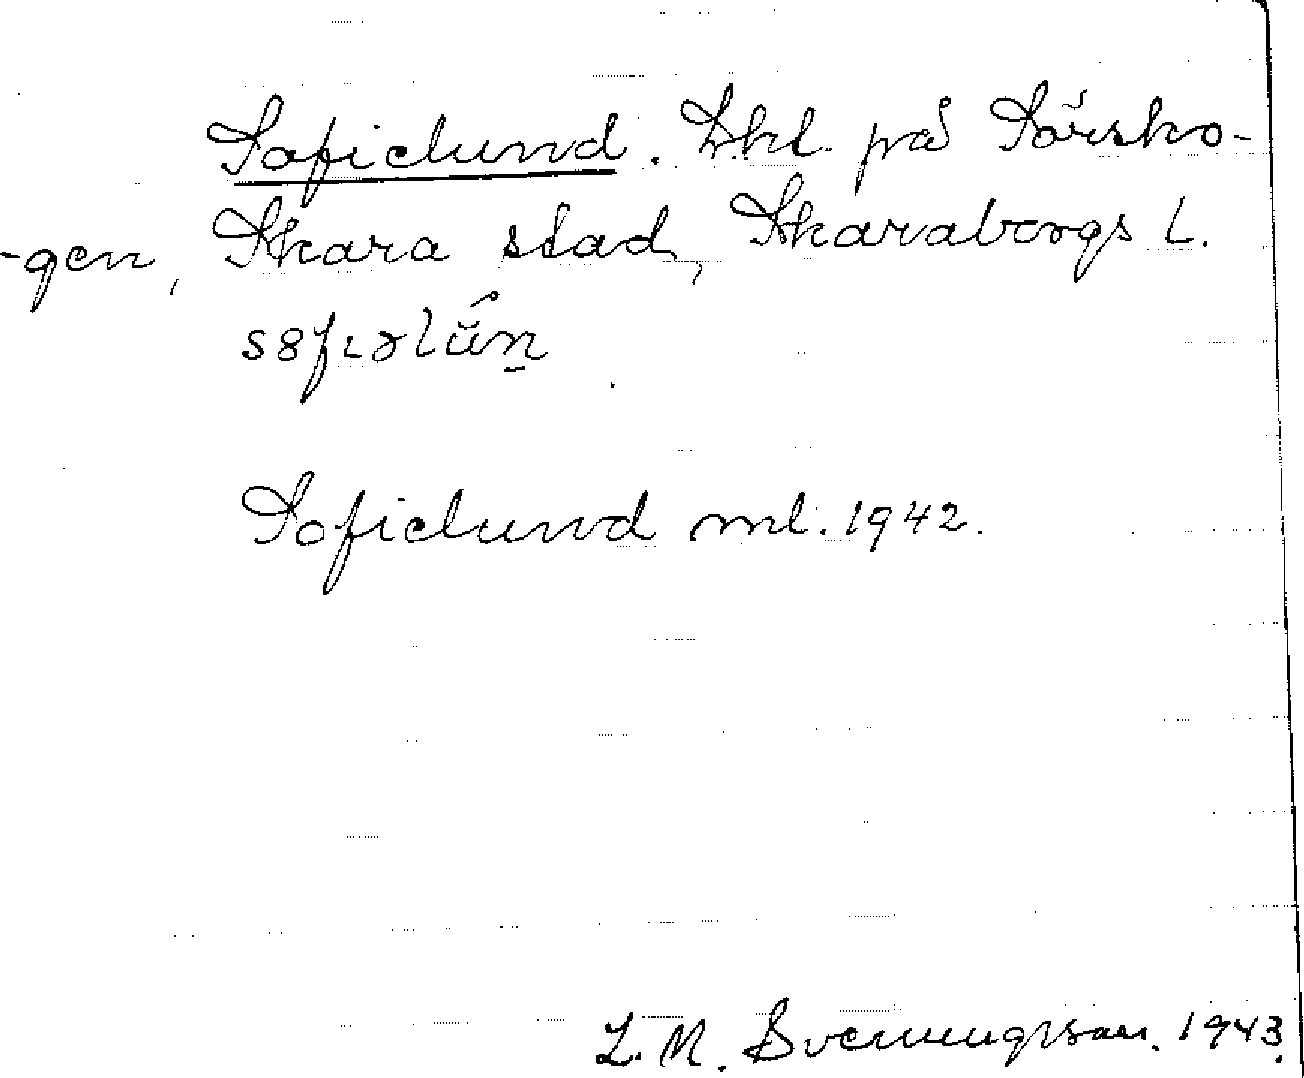 Sofielund. Lht. på Sörsko-
-gen, Skara stad, Skaraborgs L.
Sofielund ml. 1942.
L. M. Svenungsson. 1943.